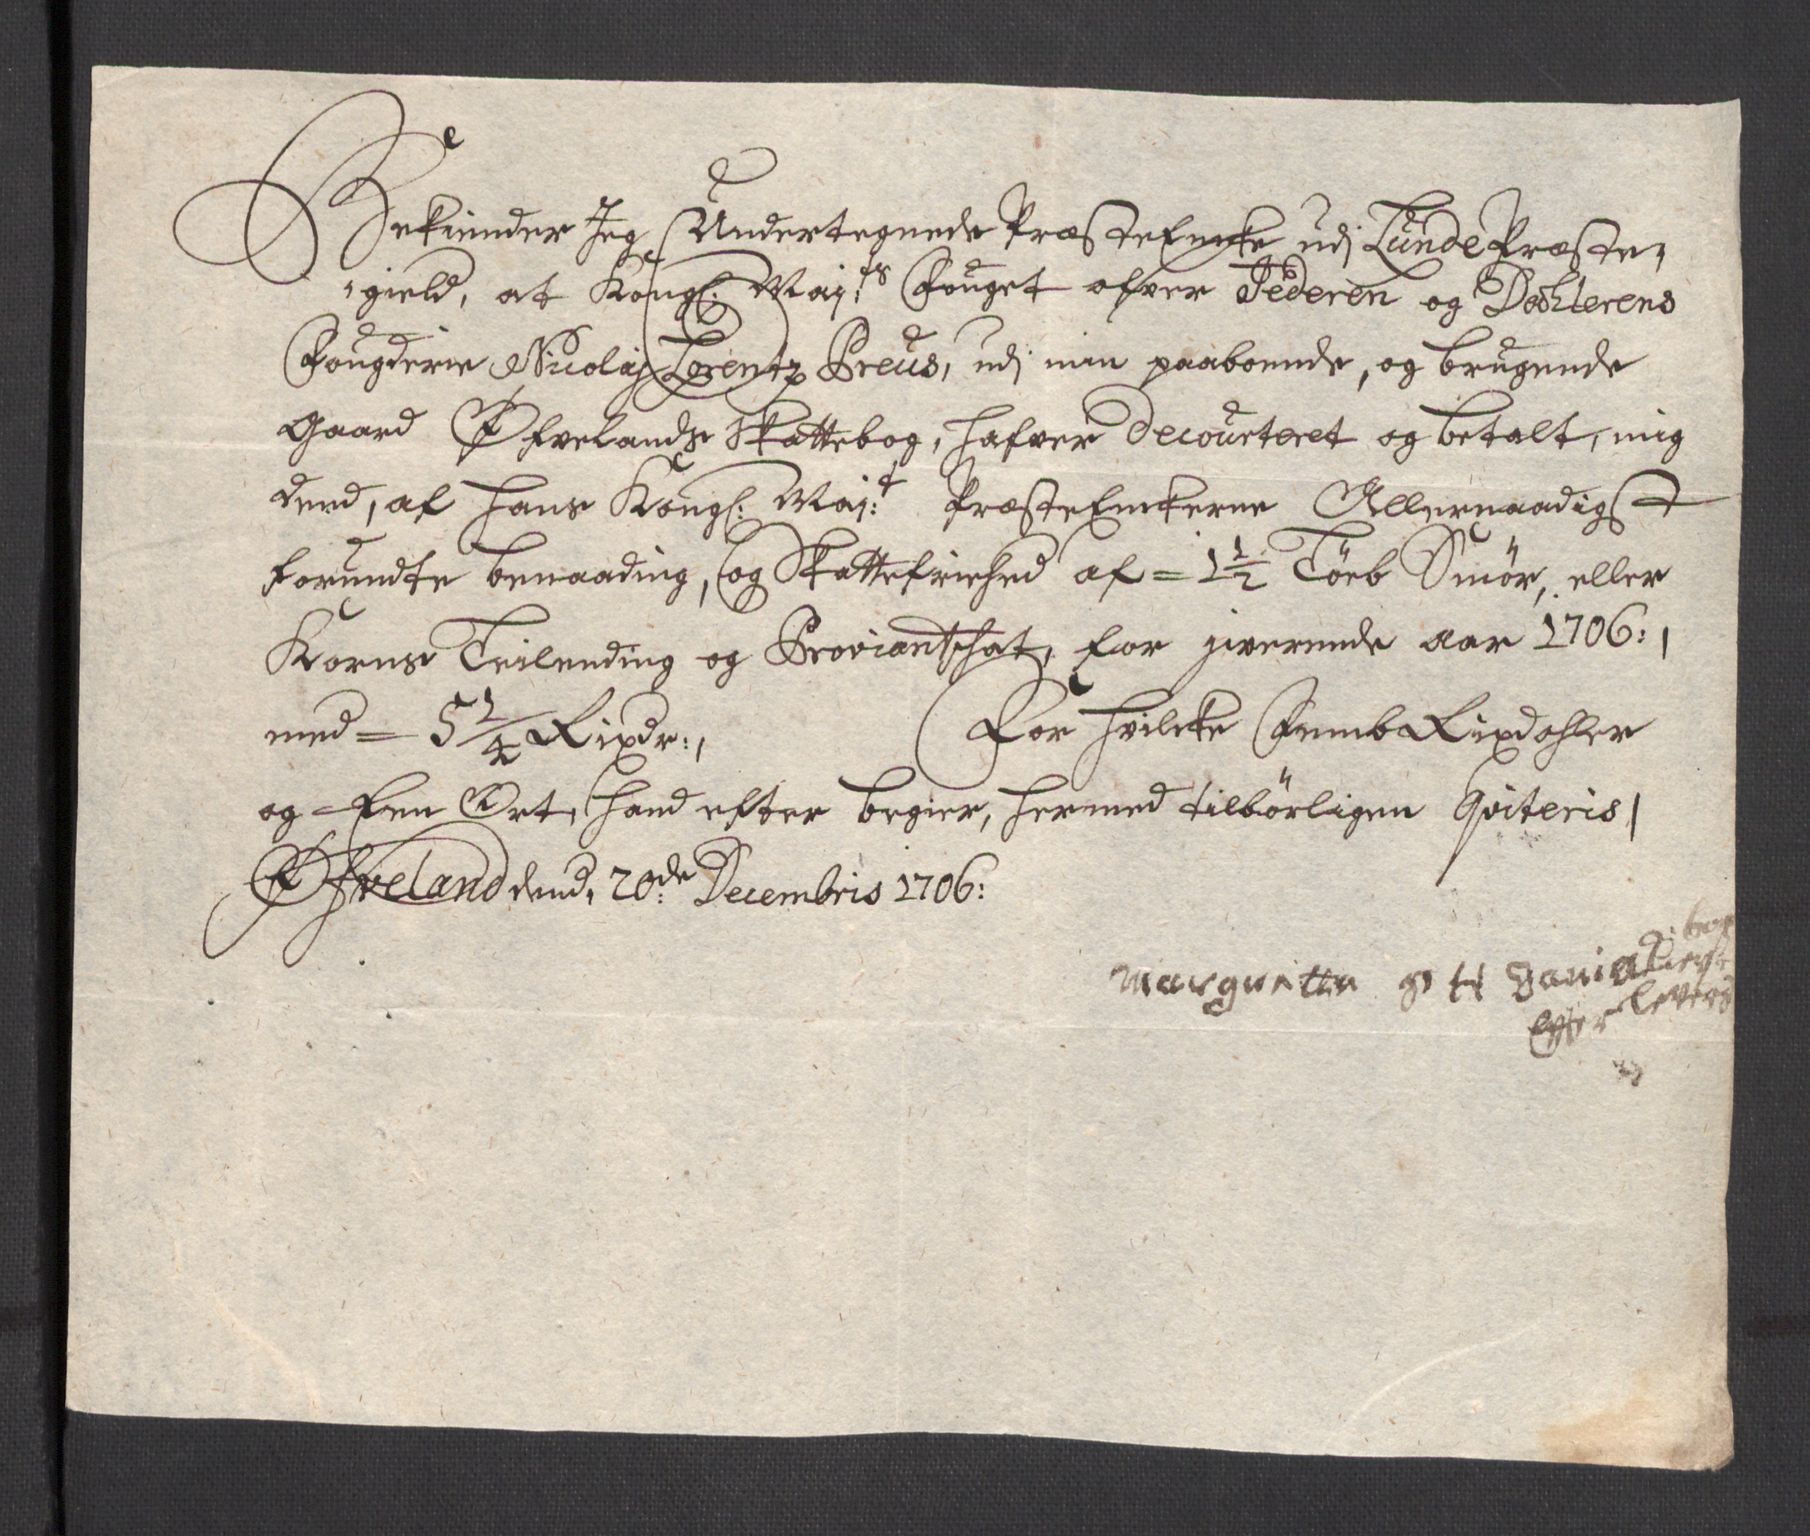 Bekiender Jeg Undertegnede PræsteEncke udj Lunde Præste,
,gield, at Kongl: Maj:ts Fouget ofver Jederen og Dahlerens
Fougderie Nicolaj Lorentz Preus, udj min paaboende, og brugende
Gaard Øfvelands Skattebog, hafver decourteret og betalt, mig
dend, af Hans Kongl: Maj:t PræsteEnckerne Allernaadigst
forundte benaading, og Skattefriehed af = 1 1/2 Töeb Smör, eller
Korns Teilending og Proviantschat, for jverende aar 1706:,
med = 5 1/4 Rixdr:, For hvilcke Femb Rixdahler
og = Een Ort, hand efter begier, hermed tilbörligen Qviteris,
Øfveland dend, 20:de Decembris 1706:
Margreitta
Efter levers